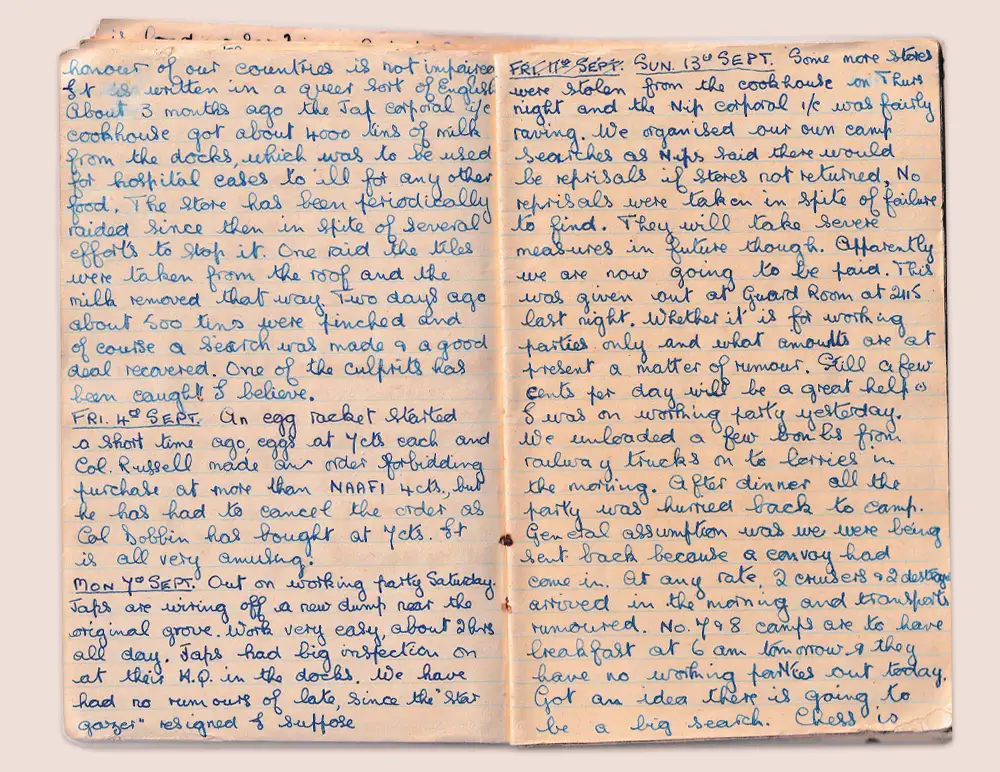 honour of our countries is not impaired
It is written in a queer sort of English
About 3 months ago the Jap corporal i/c
cookhouse got about 4000 tins of milk
from the docks, which was to be used
for hospital cases to ill for any other
food. The store has been periodically
raided since then in spite of several
efforts to stop it. One raid the tiles
were taken from the roof and the
milk removed that way. Two days ago
about 500 tins were pinched and
of course a search was made & a good
deal recovered. One of the culprits has
been caught I believe.
FRI. 4th SEPT. An egg racket started
a short time ago, eggs at 7cts each and
Col. Russell made an order forbidding
purchase at more than NAAFI 4cts., but
he has had to cancel the order as
Col Dobbin has bought at 7cts. It
is all very amusing.
MON 7th SEPT. Out on working party Saturday.
Japs are wiring off a new dump near the
original grove. Work very easy, about 2hrs
all day. Japs had big inspection on
at their H.Q. in the docks. We have
had no rumours of late, since the "Star
gazer" resigned I suppose
FRI. 11th SEPT. SUN. 13th SEPT. Some more stores
were stolen from the cookhouse on Thurs
night and the Nip corporal i/c was fairly
raving. We organised our own camp
searches as Nips said there would
be reprisals if stores not returned, No
reprisals were taken in spite of failure
to find. They will take severe
measures in future though. Apparently
we are now going to be paid. This
was given out at Guard Room at 2115
last night. Whether it is for working
parties only and what amounts are at
present a matter of rumour. Still a few
cents per day will be a great help
I was on working party yesterday.
We unloaded a few bombs from
railway trucks on to lorries in
the morning. After dinner all the
party was hurried back to camp.
General assumption was we were being
sent back because a convoy had
come in. At any rate, 2 cruisers & 2 destroye
arrived in the morning and transports
rumoured. No. 7 & 8 camps are to have
breakfast at 6 am tomorrow & they
have no working parties out today.
Got an idea there is going to
be a big search. Chess is